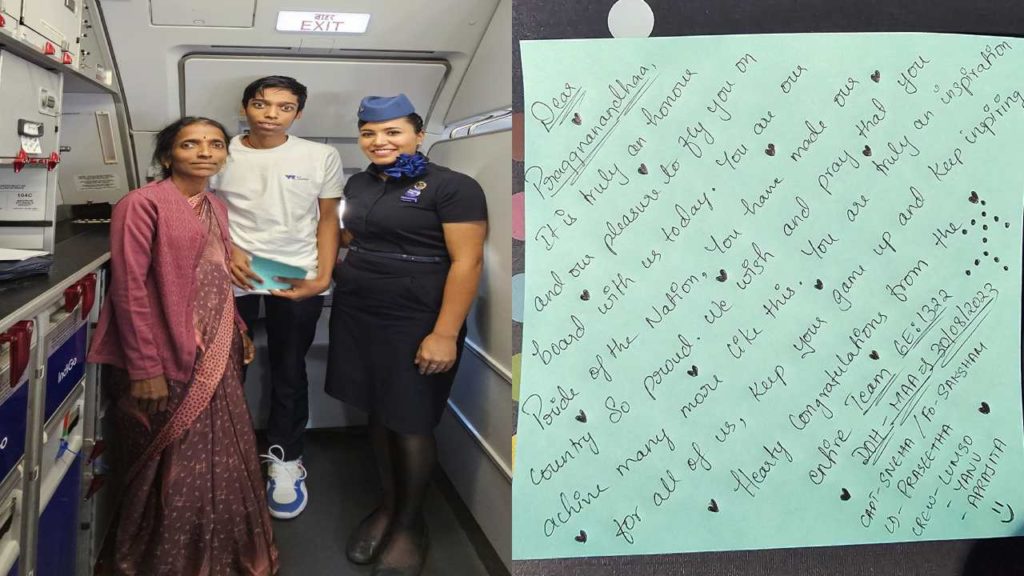 बाहर
EXIT
104C
IndiGo
Dear
Praggnanandhaa,
It is truly an honour
and our pleasure to fly you on
board with us today. You are our
Pride of the Nation, You have made our
country so proud. We wish and pray that you
achive many more like this. You are truly an inspiration
for all of us, keep your game up and keep inspiring
Hearty Congratulations from the
entire Team 6E:1322
DOH - MAA => 30/08/2023
CAPT- SNEHA / Fo. SAKSHAM
LD- PRASEETHA
CREW- LUNISO
- YANU